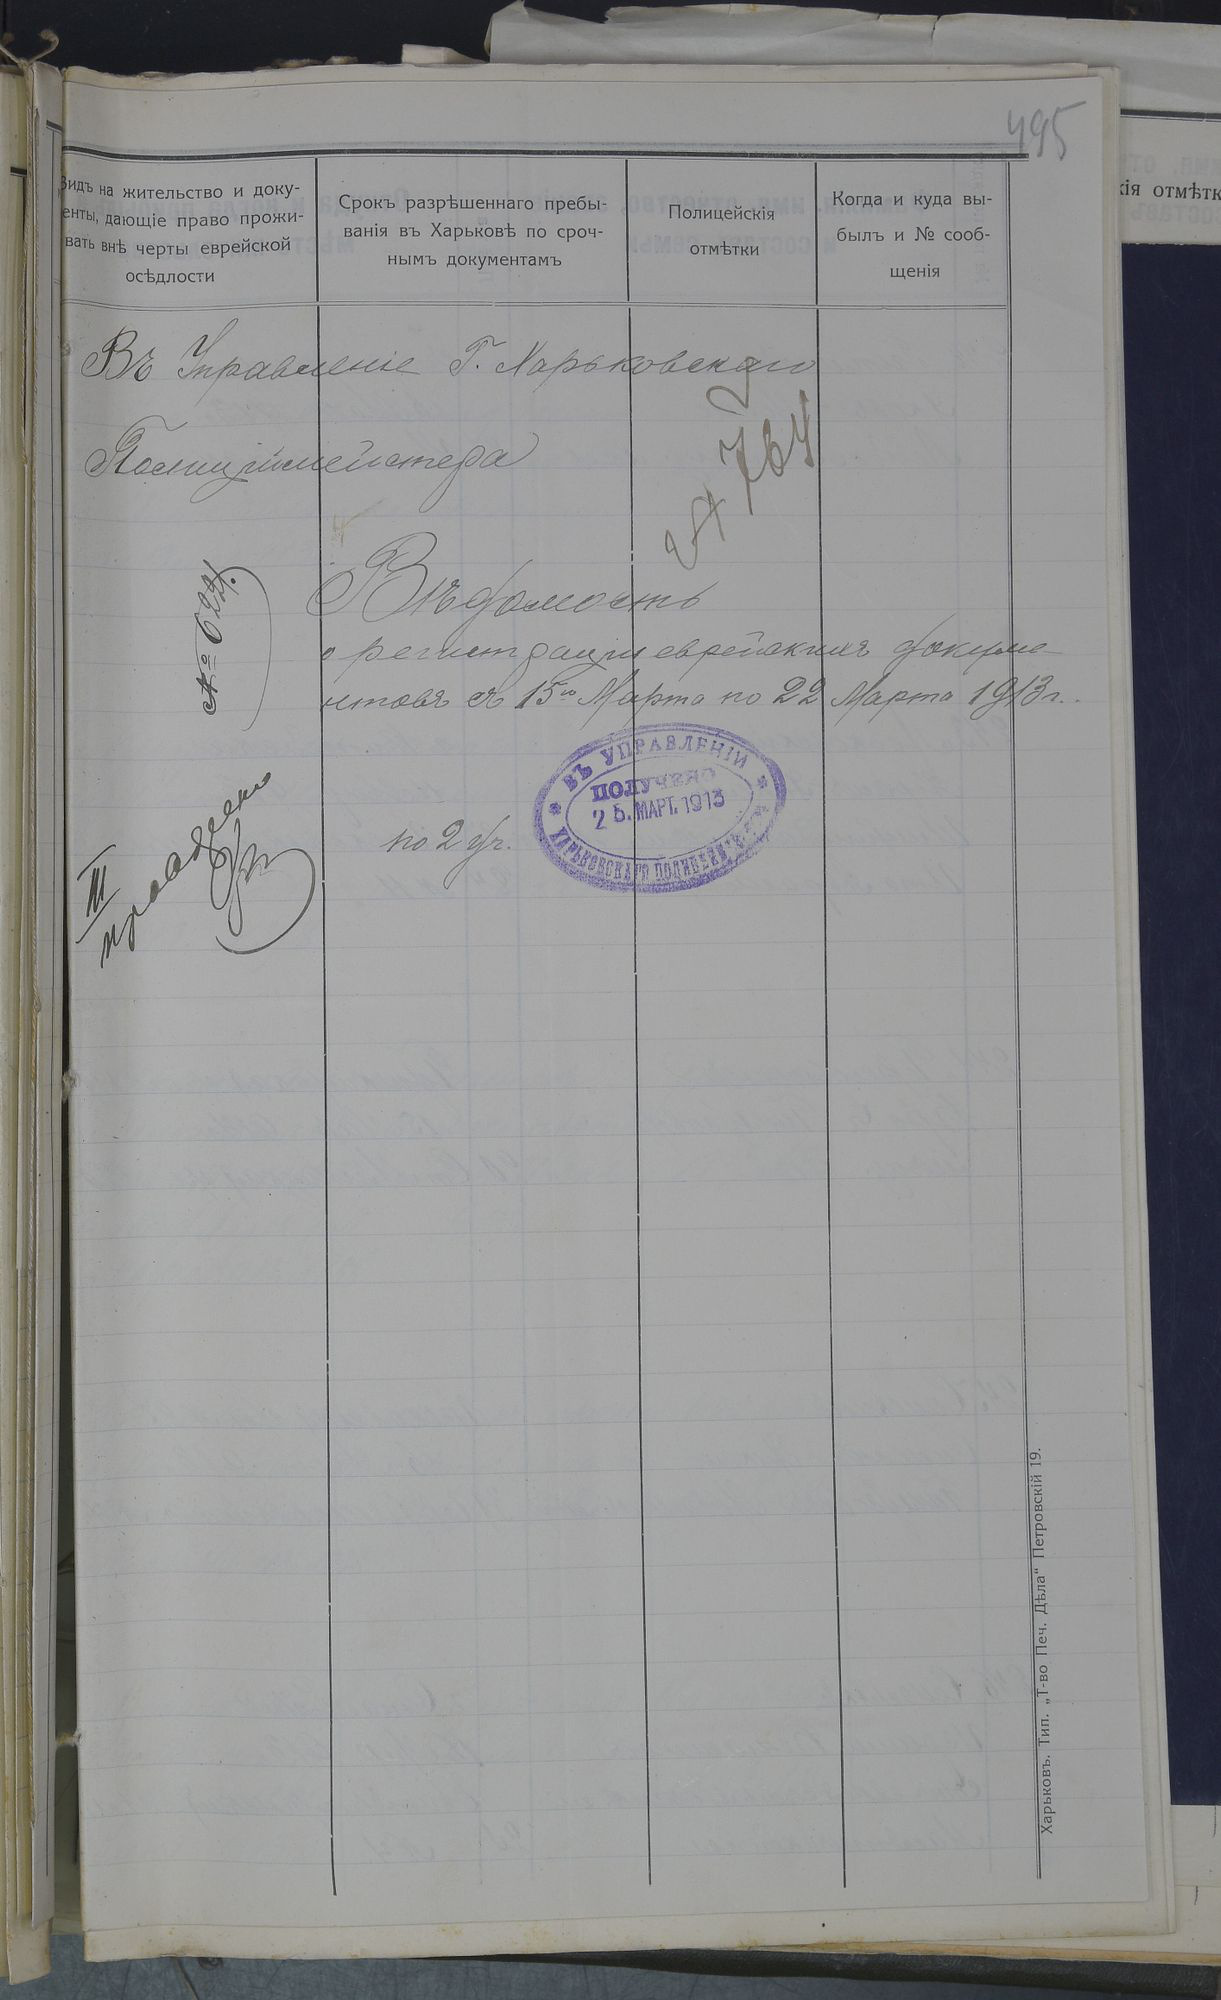 495
Видъ на жительство и доку-
енты, дающіе право прожи-
вать внѣ черты еврейской
осѣдлости
Срокъ разрѣшеннаго пребы-
ванія въ Харьковѣ по сроч-
нымъ документамъ
Полицейскія
отмѣтки
Когда и куда вы-
былъ и № сооб-
щенія
кія отмѣтк
Въ Управленіе Г. Харьковскаго
Полицiймейстера
764
№ 622.
Вѣдомость
о регистраціи еврейскихъ докуме-
нтовъ съ 15го Марта по 22 Марта 1913 г.
ВЪ УПРАВЛЕНІИ
ПОЛУЧЕНО
25. МАРТ. 1913
ХАРЬКОВСКАГО ПОЛИЦЕЙМ
по 2 уч.
III
Харьковъ. Тип. „Т-во Печ. Дѣла“ Петровскій 19.